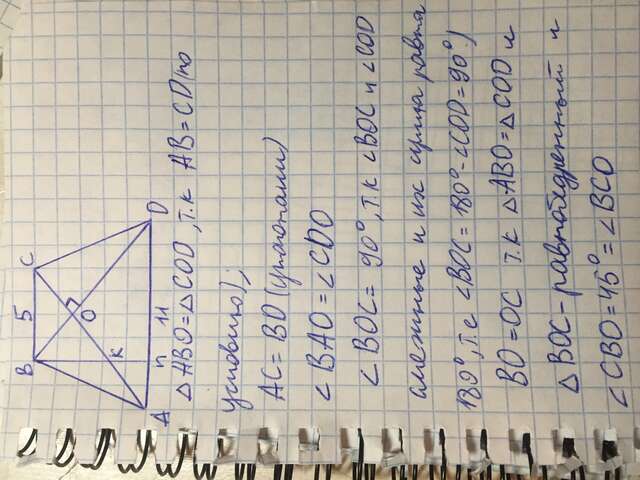 B 5 C
O
К
A п 11 D
△ABO=△COD, т.к AB=CD(по
условию);
AC=BD (умолчании)
∠BAO=∠CDO
∠BOC= 90°, т.к ∠BOC и ∠COD
смежные и их сумма равна
180°, т.е ∠BOC=180°-∠COD=90°)
BO=OC т.к △ABO=△COD и
△BOC-равнобедренный и
∠CBO=45°=∠BCO